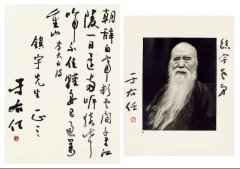 朝辭白帝彩雲間千里江
陵一日還兩岸猿聲
啼不住輕舟已過萬
重山 李太白詩
鎮宇先生正之
于右任
鎮宇
于右任